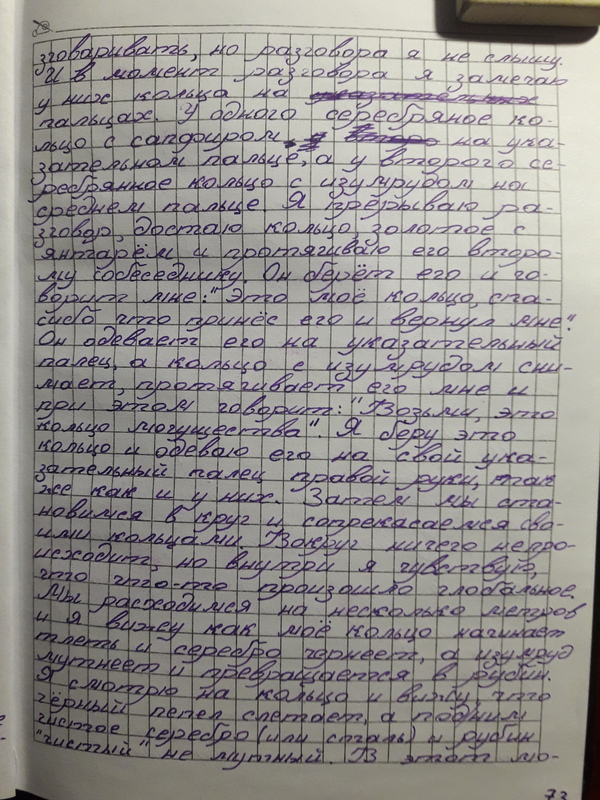 зговаривать, но разговора я не слышу.
И в момент разговора я замечаю
у них кольца на указательных
пальцах. У одного серебряное ко-
льцо с сапфиром на ука-
зательном пальце, а у второго се-
ребрянное кольцо с изумрудом на
среднем пальце. Я прерываю ра-
зговор, достаю кольцо, золотое с
янтарём и протягиваю его второ-
му собеседнику. Он берёт его и го-
ворит мне: "Это моё кольцо, спа-
сибо что принёс его и вернул мне".
Он одевает его на указательный
палец, а кольцо с изумрудом сни-
мает, протягивает его мне и
при этом говорит: "Возьми, это
кольцо могущества". Я беру это
кольцо и одеваю его на свой ука-
зательный палец правой руки, так
же как и у них. Затем мы ста-
новимся в круг и сопрекасаемся сво-
ими кольцами. Вокруг ничего непро-
исходит, но внутри я чувствую,
что что-то произошло глобальное.
Мы расходимся на несколько метров
и я вижу как моё кольцо начинает
тлеть и серебро чернеет, а изумруд
мутнеет и превращается в рубин.
Я смотрю на кольцо и вижу, что
чёрный пепел слетает, а под ним
чистое серебро (или сталь) и рубин
"чистый" не мутный. В этот мо-
73